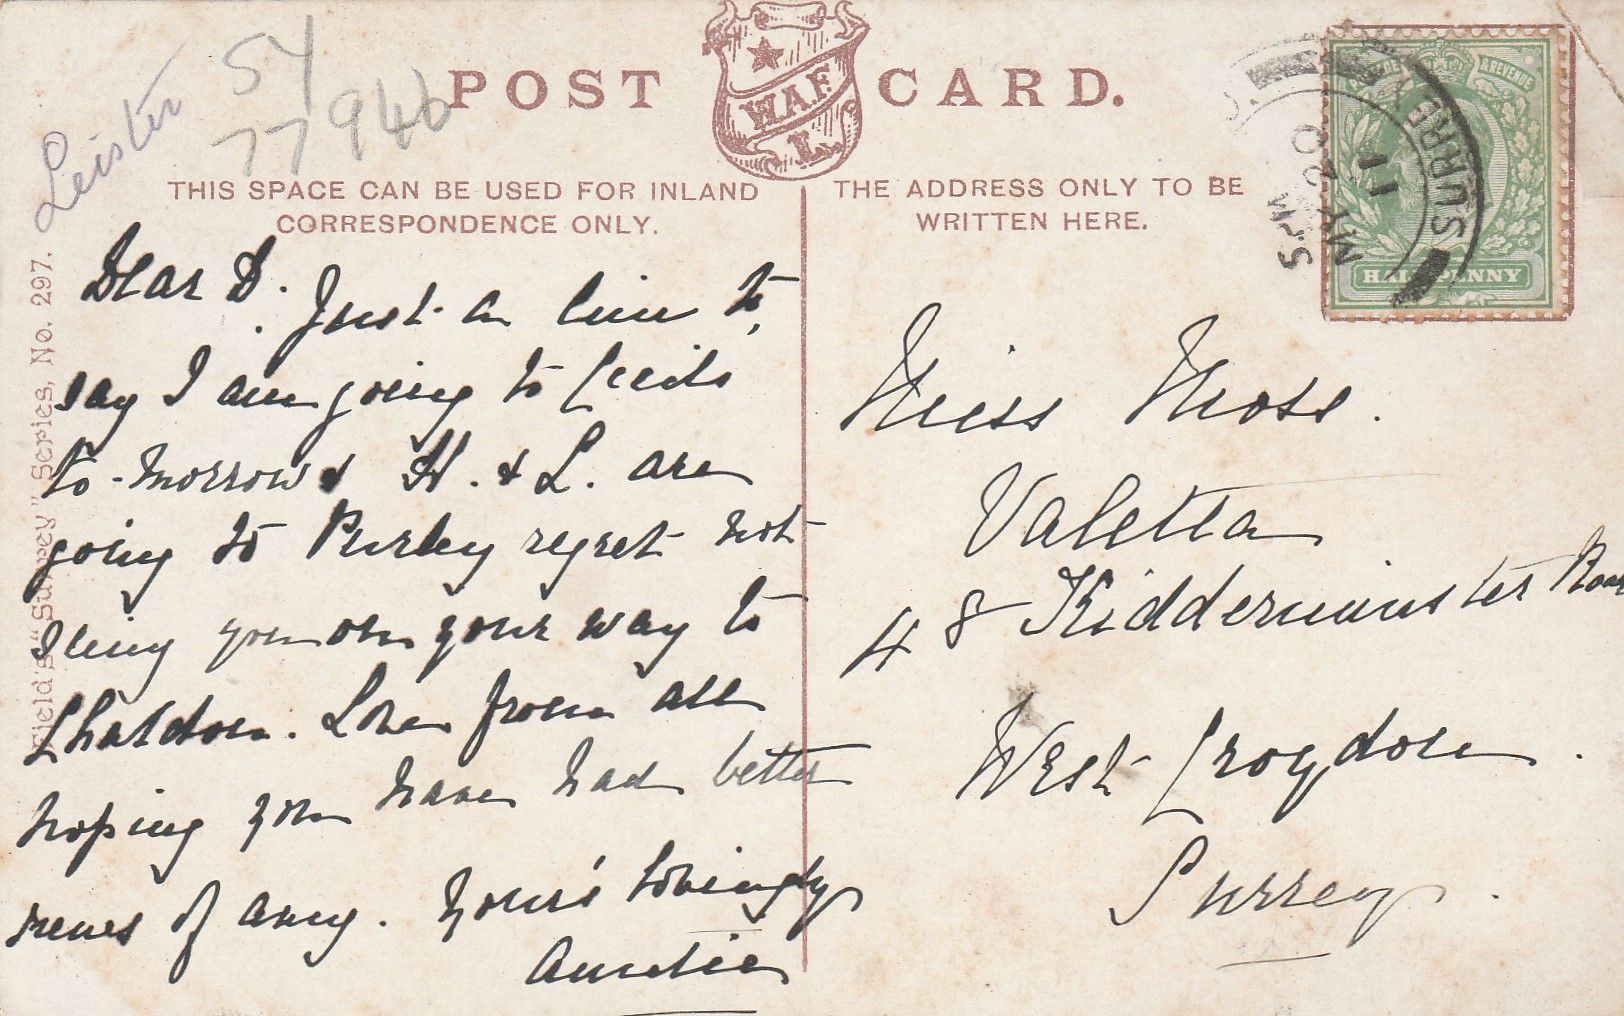 Leister
54
77946
POST CARD.
W.A.F.
L.
THIS SPACE CAN BE USED FOR INLAND
CORRESPONDENCE ONLY.
Field's "Survey" Series, No. 297.
Dear D. Just a line to
say I am going to Leeds
to-morrow & H. & L. are
going to Purley regret not
seeing you on your way to
Chaldon. Love from all
hoping you have had better
news of Amy. Your's lovingly
Auntie
THE ADDRESS ONLY TO BE
WRITTEN HERE.
& REVENUE
HALFPENNY
SURREY
5. PM
MY 20
11
Miss Moss.
Valetta
48 Kidderminster Road
West Croydon.
Surrey.